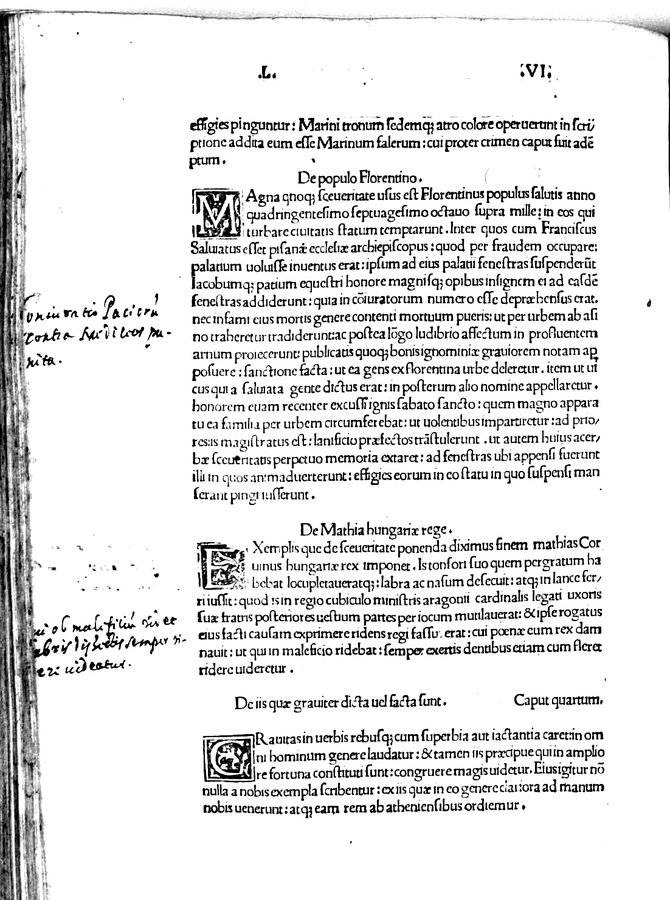 .L. .VI.
effigies pinguntur: Marini tronum sedemq; atro colore operuerunt in scri/
ptione addita eum esse Marinum falerum: cui proter crimen caput fuit adē
ptum.
De populo Florentino.
MAgna qnoq; sceueritate usus est Florentinus populus salutis anno
quadringentesimo septuagesimo octauo supra mille: in eos qui
turbare ciuitatis statum temptarunt. Inter quos cum Franciscus
Saluiatus esset pisanæ ecclesiæ archiepiscopus: quod per fraudem occupare:
palatium uoluisse inuentus erat: ipsum ad eius palatii fenestras suspenderūt
Iacobumq; patium equestri honore magnisq; opibus insignem ei ad easdē
fenestras addiderunt: quia in cōiuratorum numero esse depræhensus erat.
nec infami eius mortis genere contenti mortuum pueris: ut per urbem ab asi
no traheretur tradiderunt: ac postea lōgo ludibrio affectum in profluentem
arnum proiecerunt: publicatis quoq; bonis ignominiæ grauiorem notam ap
posuere: sanctione facta: ut ea gens ex florentina urbe deleretur. item ut ui
cus qui a saluiata gente dictus erat: in posterum alio nomine appellaretur.
honorem etiam recenter excussi ignis sabato sancto: quem magno appara
tu ea familia per urbem circumferebat: ut uolentibus impartiretur: ad prio/
res: iis magistratus est: lanificio præfectos trāstulerunt. ut autem huius acer/
bæ sceueritatis perpetuo memoria extaret: ad fenestras ubi appensi fuerunt
illi in quos animaduerterunt: effigies eorum in eo statu in quo suspensi man
serant pingi iusserunt.
De Mathia hungariæ rege.
EXemplis que de sceueritate ponenda diximus finem mathias Cor
uinus hungariæ rex imponet. Is tonsori suo quem pergratum ha
bebat locupletaueratq;: labra ac nasum desecuit: atq; in lance fer/
ri iussit: quod is in regio cubiculo ministris aragonii cardinalis legati uxoris
suæ fratris posteriores uestium partes per iocum mutilauerat: & ipse rogatus
eius facti causam exprimere ridens regi fassus erat: cui poenæ cum rex dam
nauit: ut qui in maleficio ridebat: semper exertis dentibus etiam cum fleret
ridere uideretur.
De iis quæ grauiter dicta uel facta sunt. Caput quartum.
GRauitas in uerbis rebusq; cum superbia aut iactantia caret: in om
ni hominum genere laudatur: & tamen iis præcipue qui in amplio
re fortuna constituti sunt: congruere magis uidetur. Eius igitur nō
nulla a nobis exempla scribentur: ex iis quæ in eo genere clariora ad manum
nobis uenerunt: atq; eam rem ab atheniensibus ordiemur.
Coniuratio Pacioru
contra Medices pu-
nita.
ob maleficiu
semper ri-
eri uideatur.